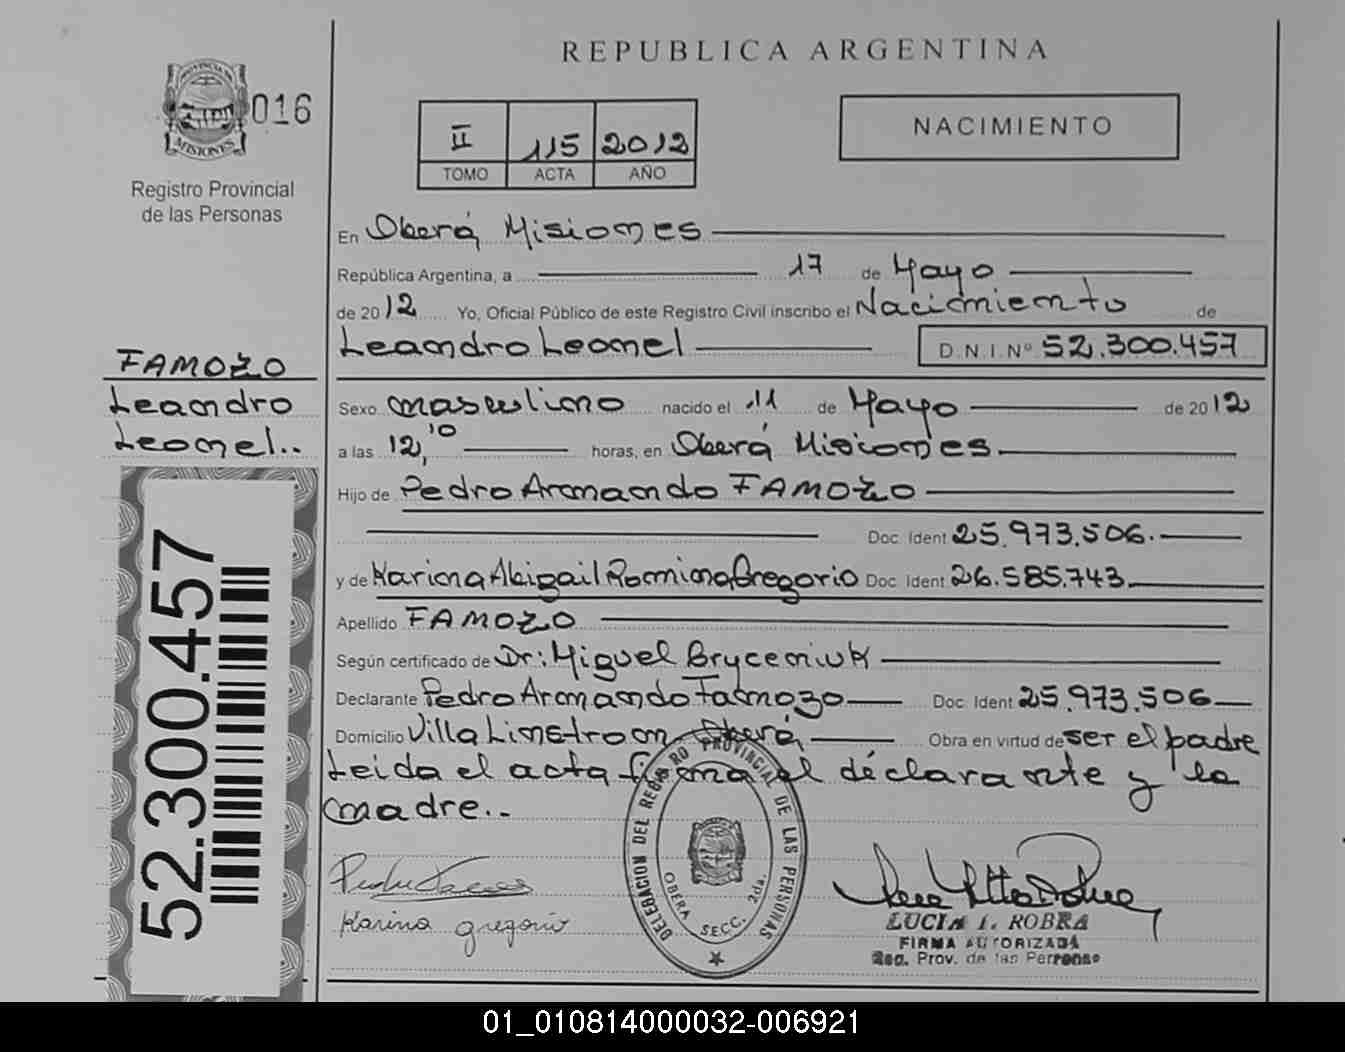 REPUBLICA ARGENTINA
PROVINCIA DE
MISIONES
016
Registro Provincial
de las Personas
II 115 2012
TOMO ACTA AÑO
NACIMIENTO
En Oberá Misiones
República Argentina, a 17 de Mayo
de 2012 Yo, Oficial Público de este Registro Civil inscribo el Nacimiento de
Leandro Leonel D.N.I. Nº 52.300.457
FAMOZO
Leandro
Leonel..
Sexo masculino nacido el 11 de Mayo de 2012
a las 12,10 horas, en Oberá Misiones
Hijo de Pedro Armando FAMOZO
Doc. Ident 25.973.506.
y de Karina Abigail Romina Gregorio Doc. Ident. 26.585.743
Apellido FAMOZO
Según certificado de Dr: Miguel Bryceniuk
Declarante Pedro Armando Famozo Doc. Ident 25.973.506
Domicilio Villa Linstroom Oberá Obra en virtud de ser el padre
Leida el acta firma el declarante y la
madre..
52.300.457
DELEGACION DEL REGISTRO PROVINCIAL DE LAS PERSONAS
OBERA SECC. 2da.
Karina gregorio
LUCIA I. ROBRA
FIRMA AUTORIZADA
Reg. Prov. de las Personas
01_010814000032-006921